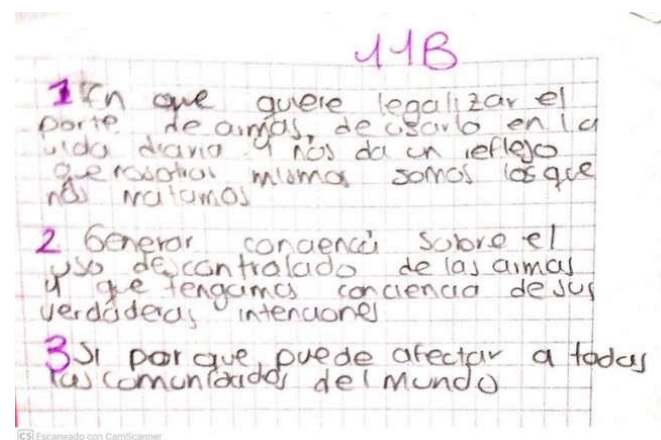 11B
1 En que quiere legalizar el
porte de armas, de usarlo en la
vida diaria y nos da un reflejo
que nosotros mismos somos los que
nos matamos
2 Generar conciencia sobre el
uso descontrolado de las armas
y que tengamos conciencia de sus
verdaderas intenciones
3 Si porque puede afectar a todas
las comunidades del mundo
CS Escaneado con CamScanner